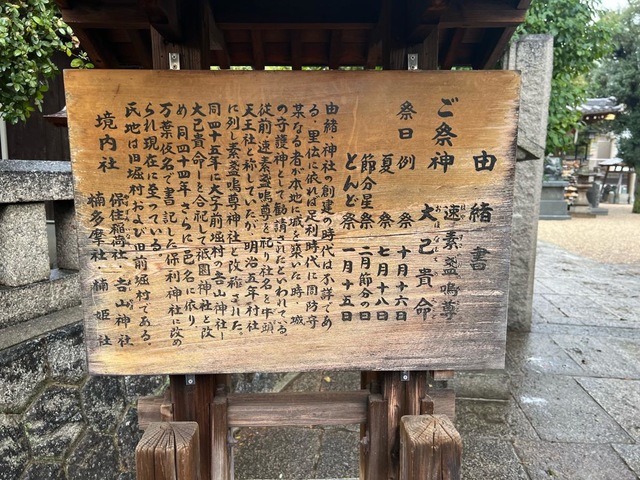 由緒書
ご祭神 速素盞嗚尊
大己貴命
祭日 例祭 十月十六日
夏祭 七月十八日
節分星祭 二月節分の日
とんど祭 一月十五日
由緒 神社の創建の時代は不詳であ
る。里伝に依れば足利時代に周防守
某なる者が本地に城を築いた時、城
の守護神として勧請されたといわれている。
従前速素盞嗚尊を祀り社名を牛頭
天王社と称していたが明治五年村社
に列し素盞嗚尊神社と改称された。
同四十五年に大字前堀村の𠮷山神社
大己貴命を合祀して祇園神社と改
め、同四十四年さらに邑名に依り
万葉仮名で書記した保利神社に改め
られ現在に至っている。
氏地は旧堀村および旧前堀村である。
境内社 保住稲荷社・𠮷山神社
楠多摩社・楠姫社